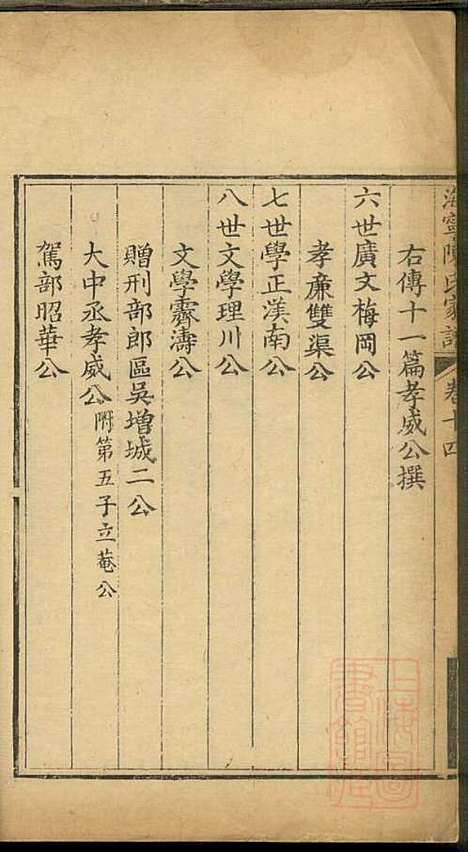 海寧陳氏家譜 卷十四
右傳十一篇孝威公撰
六世廣文梅岡公
孝廉雙渠公
七世學正漢南公
八世文學理川公
文學霽濤公
贈刑部郎區吳增城二公
大中丞孝威公附第五子立菴公
駕部昭華公